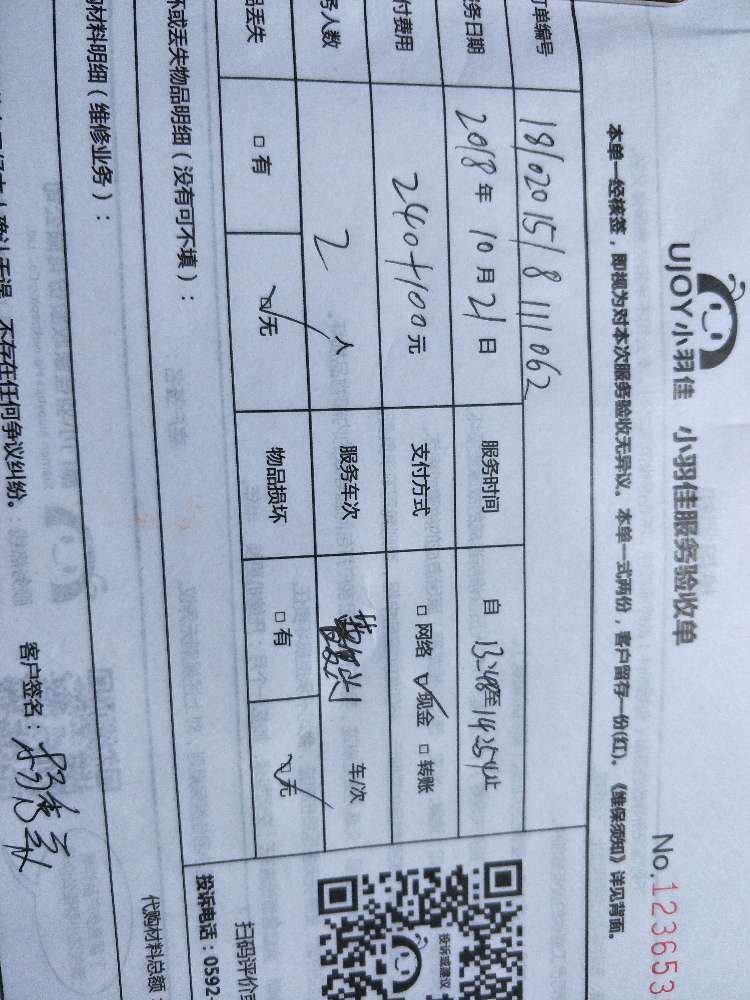 UJOY小羽佳 小羽佳服务验收单
No.123653
本单一经核签，即视为对本次服务验收无异议。本单一式两份，客户留存一份(红)。《维保须知》详见背面。
订单编号 1810201518111062
务日期 2018年10月21日 服务时间 自13:48至14:54止
付费用 240+100元 支付方式 □网络 ☑现金 □转账
务人数 2人 服务车次 车/次
品丢失 □有 ☑无 物品损坏 □有 ☑无
坏或丢失物品明细（没有可不填）：
扫码评价
投诉或建议
投诉电话：0592-
购材料明细（维修业务）：
代购材料总额：
确认无误，不存在任何争议纠纷。
客户签名：